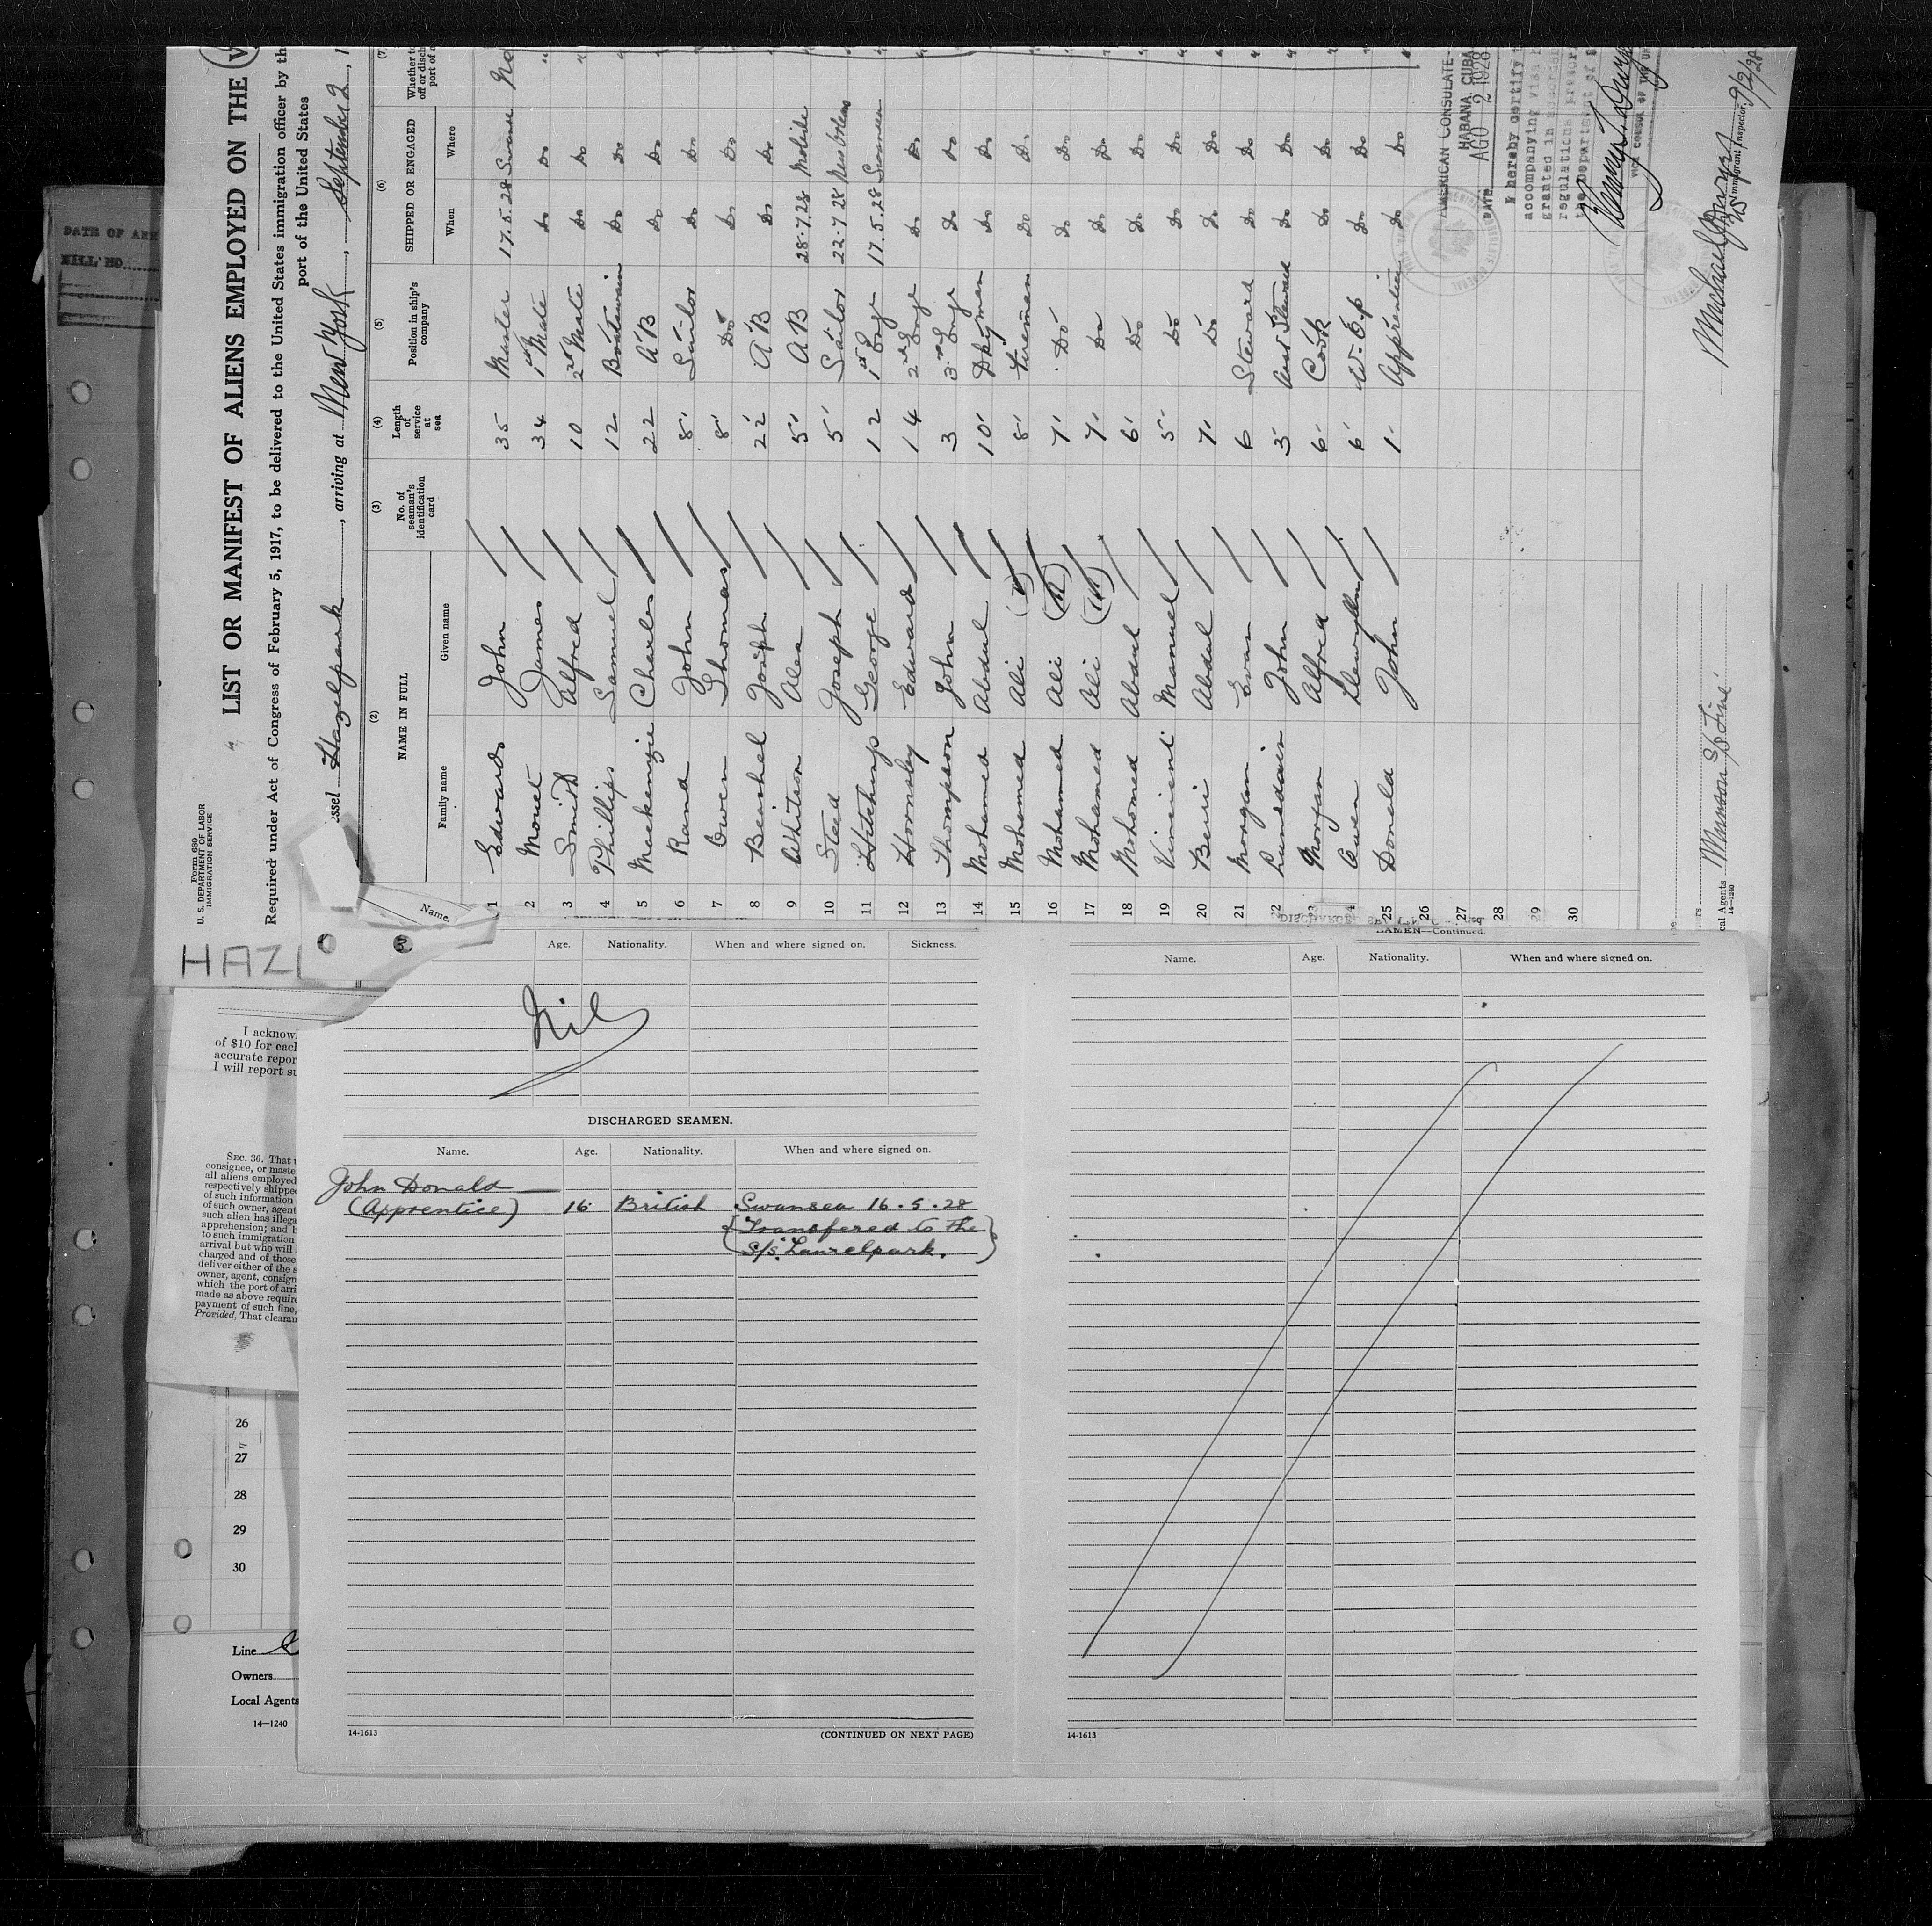 DATE OF ARR
BILL NO.
Form 680
U. S. DEPARTMENT OF LABOR
IMMIGRATION SERVICE
LIST OR MANIFEST OF ALIENS EMPLOYED ON THE
Required under Act of Congress of February 5, 1917, to be delivered to the United States immigration officer by th
port of the United States
ssel Hazelpark, arriving at New York, September 2, 1
(2) (3) (4) (5) (6) (7)
NAME IN FULL No. of seaman's identification card Length of service at sea Position in ship's company SHIPPED OR ENGAGED Whether to
off or disch
port of a
Family name Given name When Where
1 Edwards John 35 Master 17.5.28 Swansea
2 Mouet James 34 1st Mate Do Do "
3 Smith Alfred 10 2nd Mate Do Do "
4 Phillips Samuel 12 Boatswain Do Do "
5 Mackenzie Charles 22 AB Do Do "
6 Rand John 8 Sailor Do Do "
7 Owen Thomas 8 Do Do Do "
8 Beashel Joseph 22 AB Do Do "
9 Whitson Alec 5 AB 28.7.28 Mobile "
10 Steed Joseph 5 Sailor 22.7.28 New Orleans "
11 Hitchings George 12 1st Engr 17.5.28 Swansea "
12 Hornsby Edward 14 2nd Engr Do Do "
13 Thompson John 3 3rd Engr Do Do "
14 Mohamed Abdul 10 Dkyman Do Do "
15 Mohamed Ali 8 Fireman Do Do "
16 Mohamed Ali 7 Do Do Do "
17 Mohamed Ali 7 Do Do Do "
18 Mohomed Abdul 6 Do Do Do "
19 Vincient Manuel 5 Do Do Do "
20 Berri Abdul 7 Do Do Do "
21 Morgan Evan 6 Steward Do Do "
22 Lumsdain John 3 Asst Steward Do Do "
23 Morgan Alfred 6 Cook Do Do "
24 Owen Llewyllin 6 Do Do "
25 Donald John 1 Apprentice Do Do "
26
27
28
29
30
AMERICAN CONSULATE-
HABANA, CUBA
DATE AGO 2 1928
I hereby certify
accompanying visa
granted in
regulations
the Department of
VICE CONSUL OF THE UN
Immigrant Inspector. 9/2/28
cal Agents Munson S/S Line
14-1240
HAZ
Name.
Age. Nationality. When and where signed on. Sickness.
Nil
DISCHARGED SEAMEN.
Name. Age. Nationality. When and where signed on.
John Donald
(Apprentice) 16 British Swansea 16.5.28
{Transfered to the
S/S. Laurelpark.}
14-1613 (CONTINUED ON NEXT PAGE)
AMEN—Continued.
Name. Age. Nationality. When and where signed on.
14-1613
I acknow
of $10 for each
accurate repor
I will report su
SEC. 36. That
consignee, or maste
all aliens employed
respectively shipped
of such information
of such owner, agent
such alien has illega
apprehension; and
to such immigration
arrival but who will
charged and of those
deliver either of the s
owner, agent, consign
which the port of arri
made as above require
payment of such fine,
Provided, That clearan
26
27
28
29
30
Line
Owners
Local Agents
14—1240